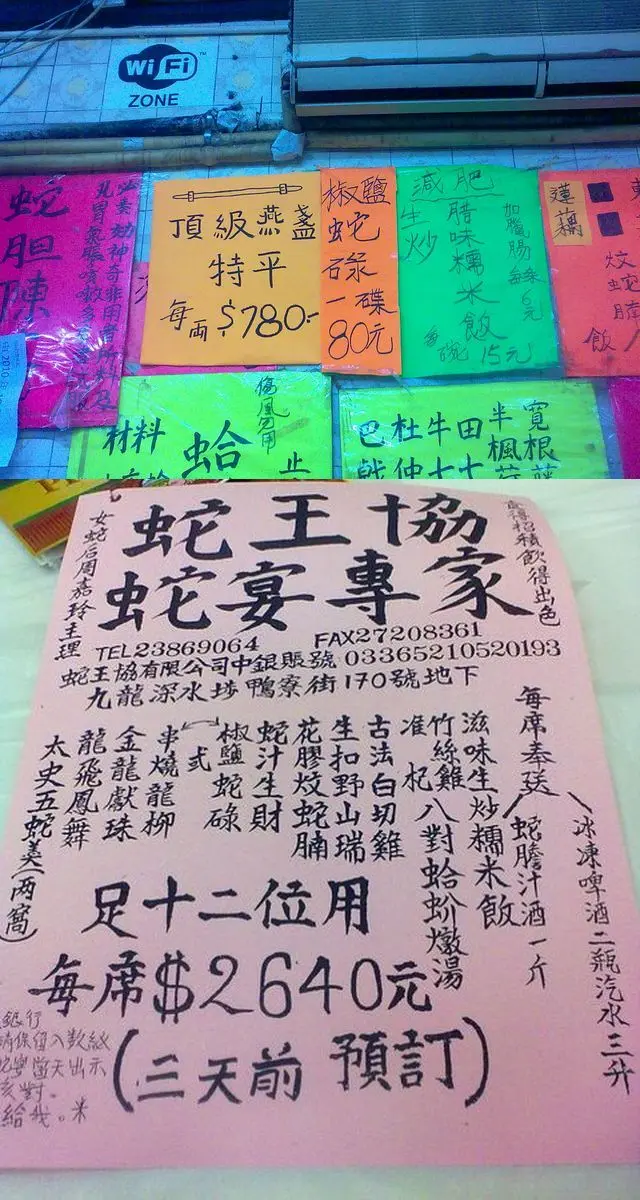 WiFi
ZONE
蛇胆陳
頂級燕盞
特平
每両$780.-
椒鹽蛇碌
一碟
80元
減肥
生炒
腊味糯米飯
每碗15元
如臘腸每条6元
蓮藕
炆蛇腩
飯
材料
蛤
傷風勿用
止
巴戟
杜仲
牛
田七
半楓荷
寬根藤
蛇王協
蛇宴專家
女蛇后周嘉玲主理
飲得出色
TEL23869064 FAX27208361
蛇王協有限公司中銀賬號03365210520193
九龍深水埗鴨寮街170號地下
每席奉送
冰凍啤酒二瓶汽水三升
蛇膽汁酒一斤
滋味生炒糯米飯
竹絲雞八對蛤蚧燉湯
准杞
古法白切雞
生扣野山瑞
花膠炆蛇腩
蛇汁生財
椒鹽蛇碌
弍
串燒龍柳
金龍獻珠
龍飛鳳舞
太史五蛇羹(両窩)
足十二位用
每席$2640元
(三天前預訂)
銀行
請保留入數紙
蛇宴當天出示
核對。
給我。米